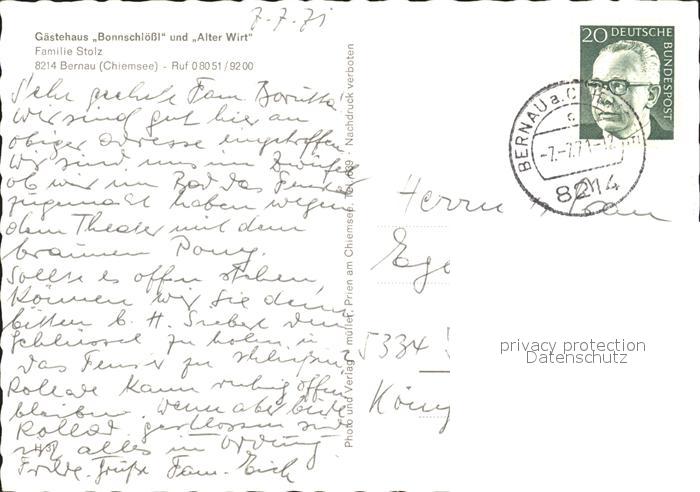 7.7.71
Gästehaus „Bonnschlößl" und „Alter Wirt"
Familie Stolz
8214 Bernau (Chiemsee) - Ruf 08051/9200
Sehr geehrte Fam. Borutta
wir sind gut hier an
obiger Adresse eingetroffen
wir sind uns im Zweifel
ob wir im Bad das Fenster
zugemacht haben wegen
dem Theater mit dem
braunen Pony.
Sollte es offen stehen,
können wir Sie dann
bitten b. H. den
Schlüssel zu holen u
das Fenster zu schließen
Rollade kann ruhig offen
bleiben. Wenn aber beide
Rollad. geschlossen sind
ist alles in Ordnung
Frdl. Grüße Fam. Eich
Photo und Verlag müller, Prien am Chiemsee, Nachdruck verboten
20 DEUTSCHE
BUNDESPOST
BERNAU a. C
-7.-7.71-12
8214
Herrn
Ege
5334
Köng
privacy protection
Datenschutz